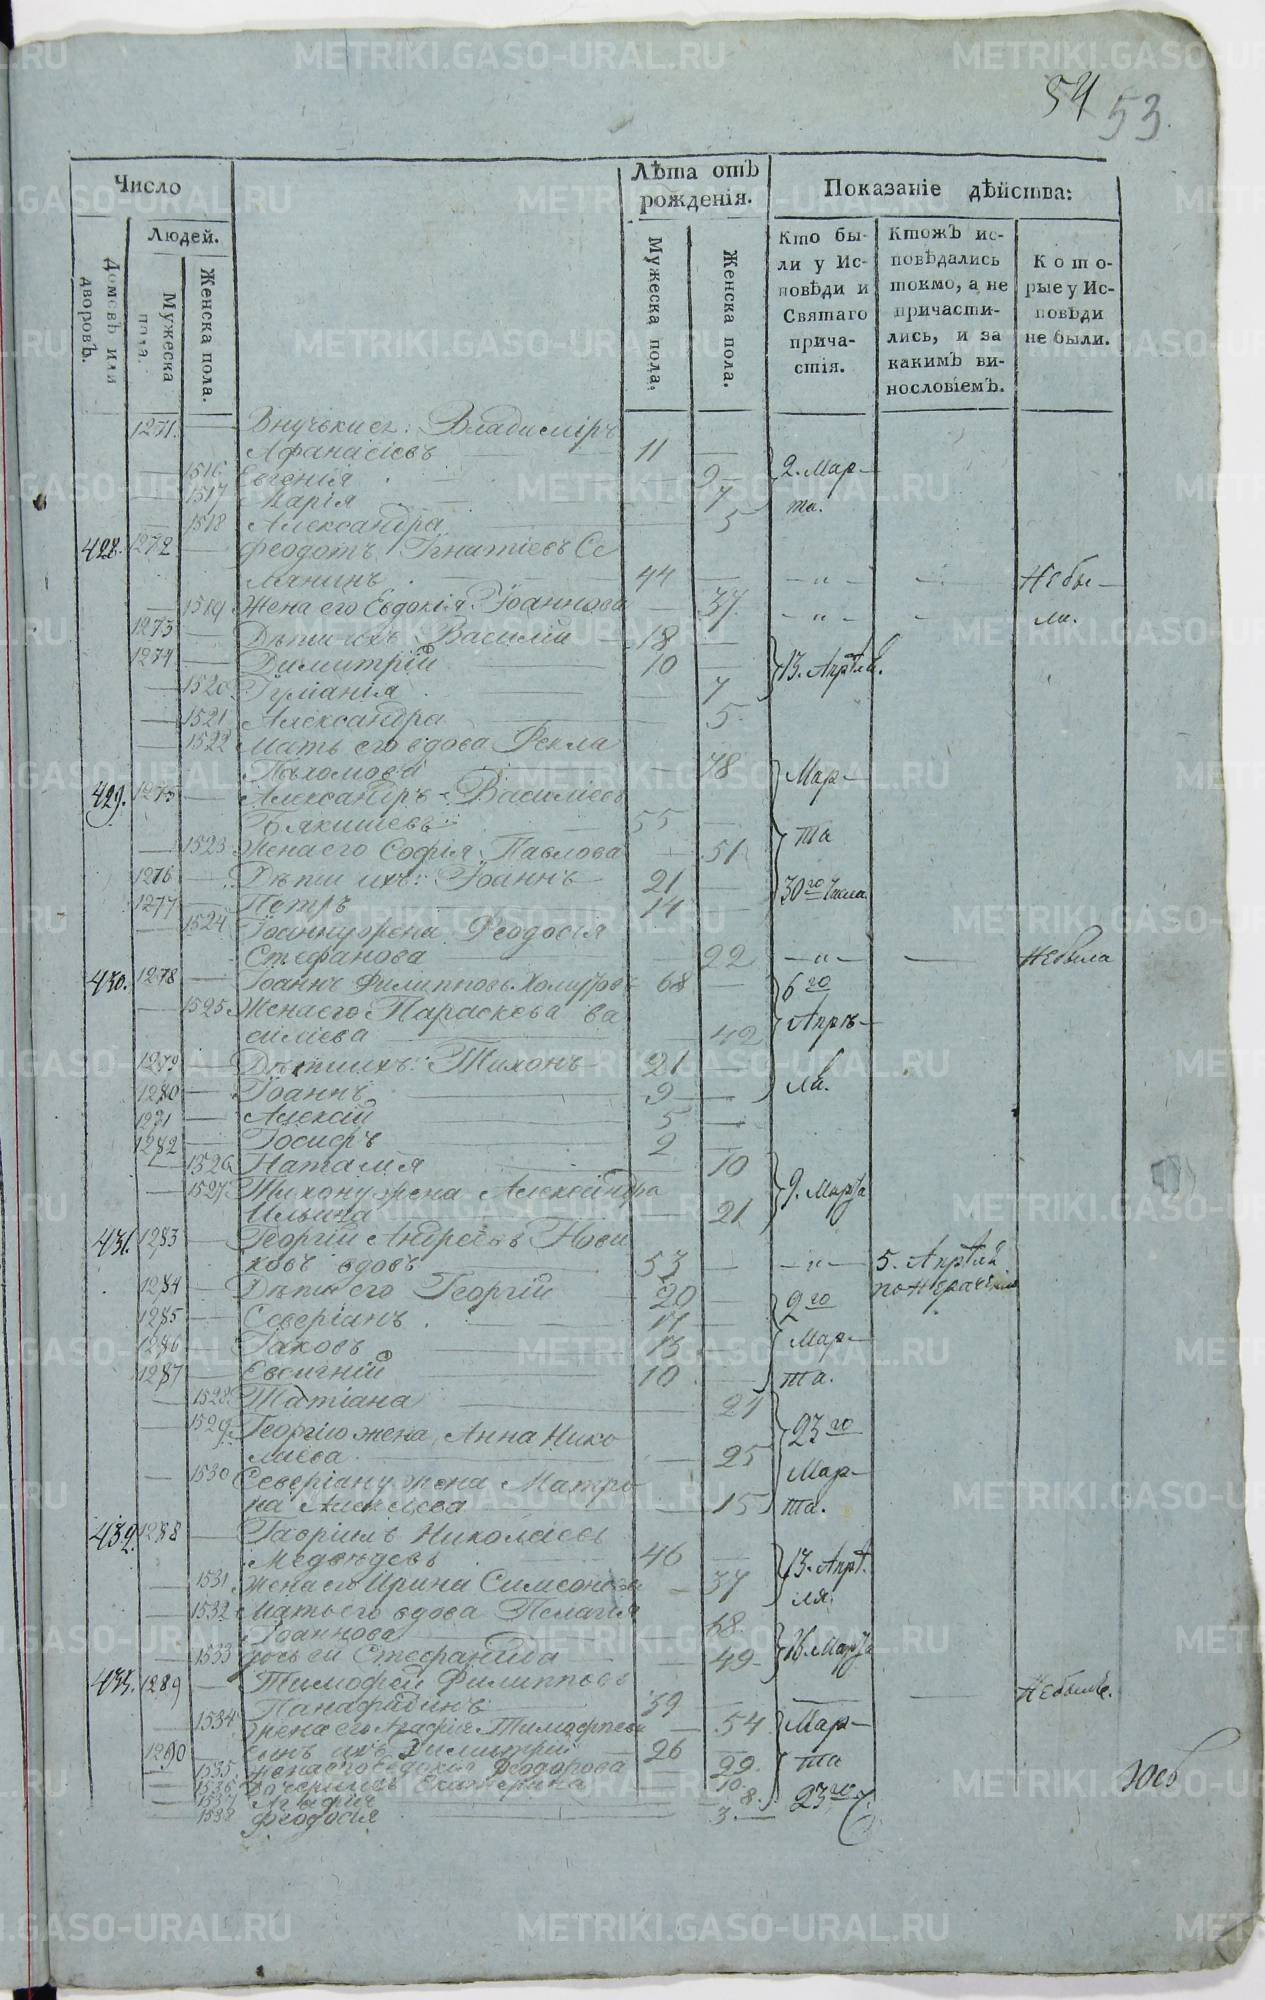 54 53
Число
Людей.
Домовъ или дворовъ.
Мужеска пола.
Женска пола.
Лѣта отъ рожденія.
Мужеска пола,
Женска пола.
Показаніе дѣйства:
Кто бы-
ли у Ис-
повѣди и
Святаго
прича-
стія.
Ктожъ ис-
повѣдались
токмо, а не
причасти-
лись, и за
какимъ ви-
нословіемъ.
Кото-
рые у Ис-
повѣди
не были.
1271. Внучьки ег: Владиміръ
Афанасіевъ 11
1516 Евгенія 9 2. Мар-
1517 Марія 7 та.
1518 Александра 5
428. 1272 Феодотъ Игнатіевъ Се
лянинъ 44 Небы-
1519 Жена его Евдокія Іоаннова 37 ли.
1273 Дѣти ихъ Василій 18
1274 Димитрій 10 13. Апрѣля.
1520 Іуліанія 7
1521 Александра 5
1522 Мать его вдова Фекла
Пахомова 78 Мар-
429. 1275 Александръ Василіевъ
Бякишевъ 55 та
1523 Жена его Софія Павлова 51
1276 Дѣти ихъ: Іоаннъ 21 30го Числа
1277 Петръ 14
1524 Іоанну жена Феодосія
Стефанова 22 Небыла
430. 1278 Іоаннъ Филипповъ 68 6го
1525 Жена его Параскева Ва
силіева 42 Апрѣ-
1279 Дѣти ихъ: Тихонъ 21
1280 Іоаннъ 9 ля.
1281 Алексій 5
1282 Іосифъ 2
1526 Наталія 10
1527 Тихону жена Александра 9. Марта
Ильина 21
431. 1283 Георгій Андреевъ Носи
ковъ вдовъ 53 5. Апрѣля
1284 Дѣти его Георгій 20 2го
1285 Северіанъ 17
1286 Іаковъ 13 Мар-
1287 Евсигній 10 та.
1528 Татіана 21
1529 Георгію жена Анна Нико 23го
лаева 25
1530 Северіану жена Матро Мар-
на Алексіева 15 та.
432. 1288 Гавріилъ Николаевъ
Медвѣдевъ 46 13. Апрѣ.
1531 Жена его Ирина Симеонова 37 ля.
1532 Мать его вдова Пелагія
Іоаннова 68
1533 дочь ей Стефанида 49 16. Марта
433. 1289 Тимофей Филипповъ Небылъ.
Панафидинъ 59
1534 Жена его Агафія Тимофеева 54 Мар-
1290 Сынъ ихъ Димитрій 26
1535 Жена его Евдокія Феодорова 29 та
1536 Дочери ихъ Екатерина 10.
1537 8. 23го Ч.
1538 Феодосія 3.
METRIKI.GASO-URAL.RU